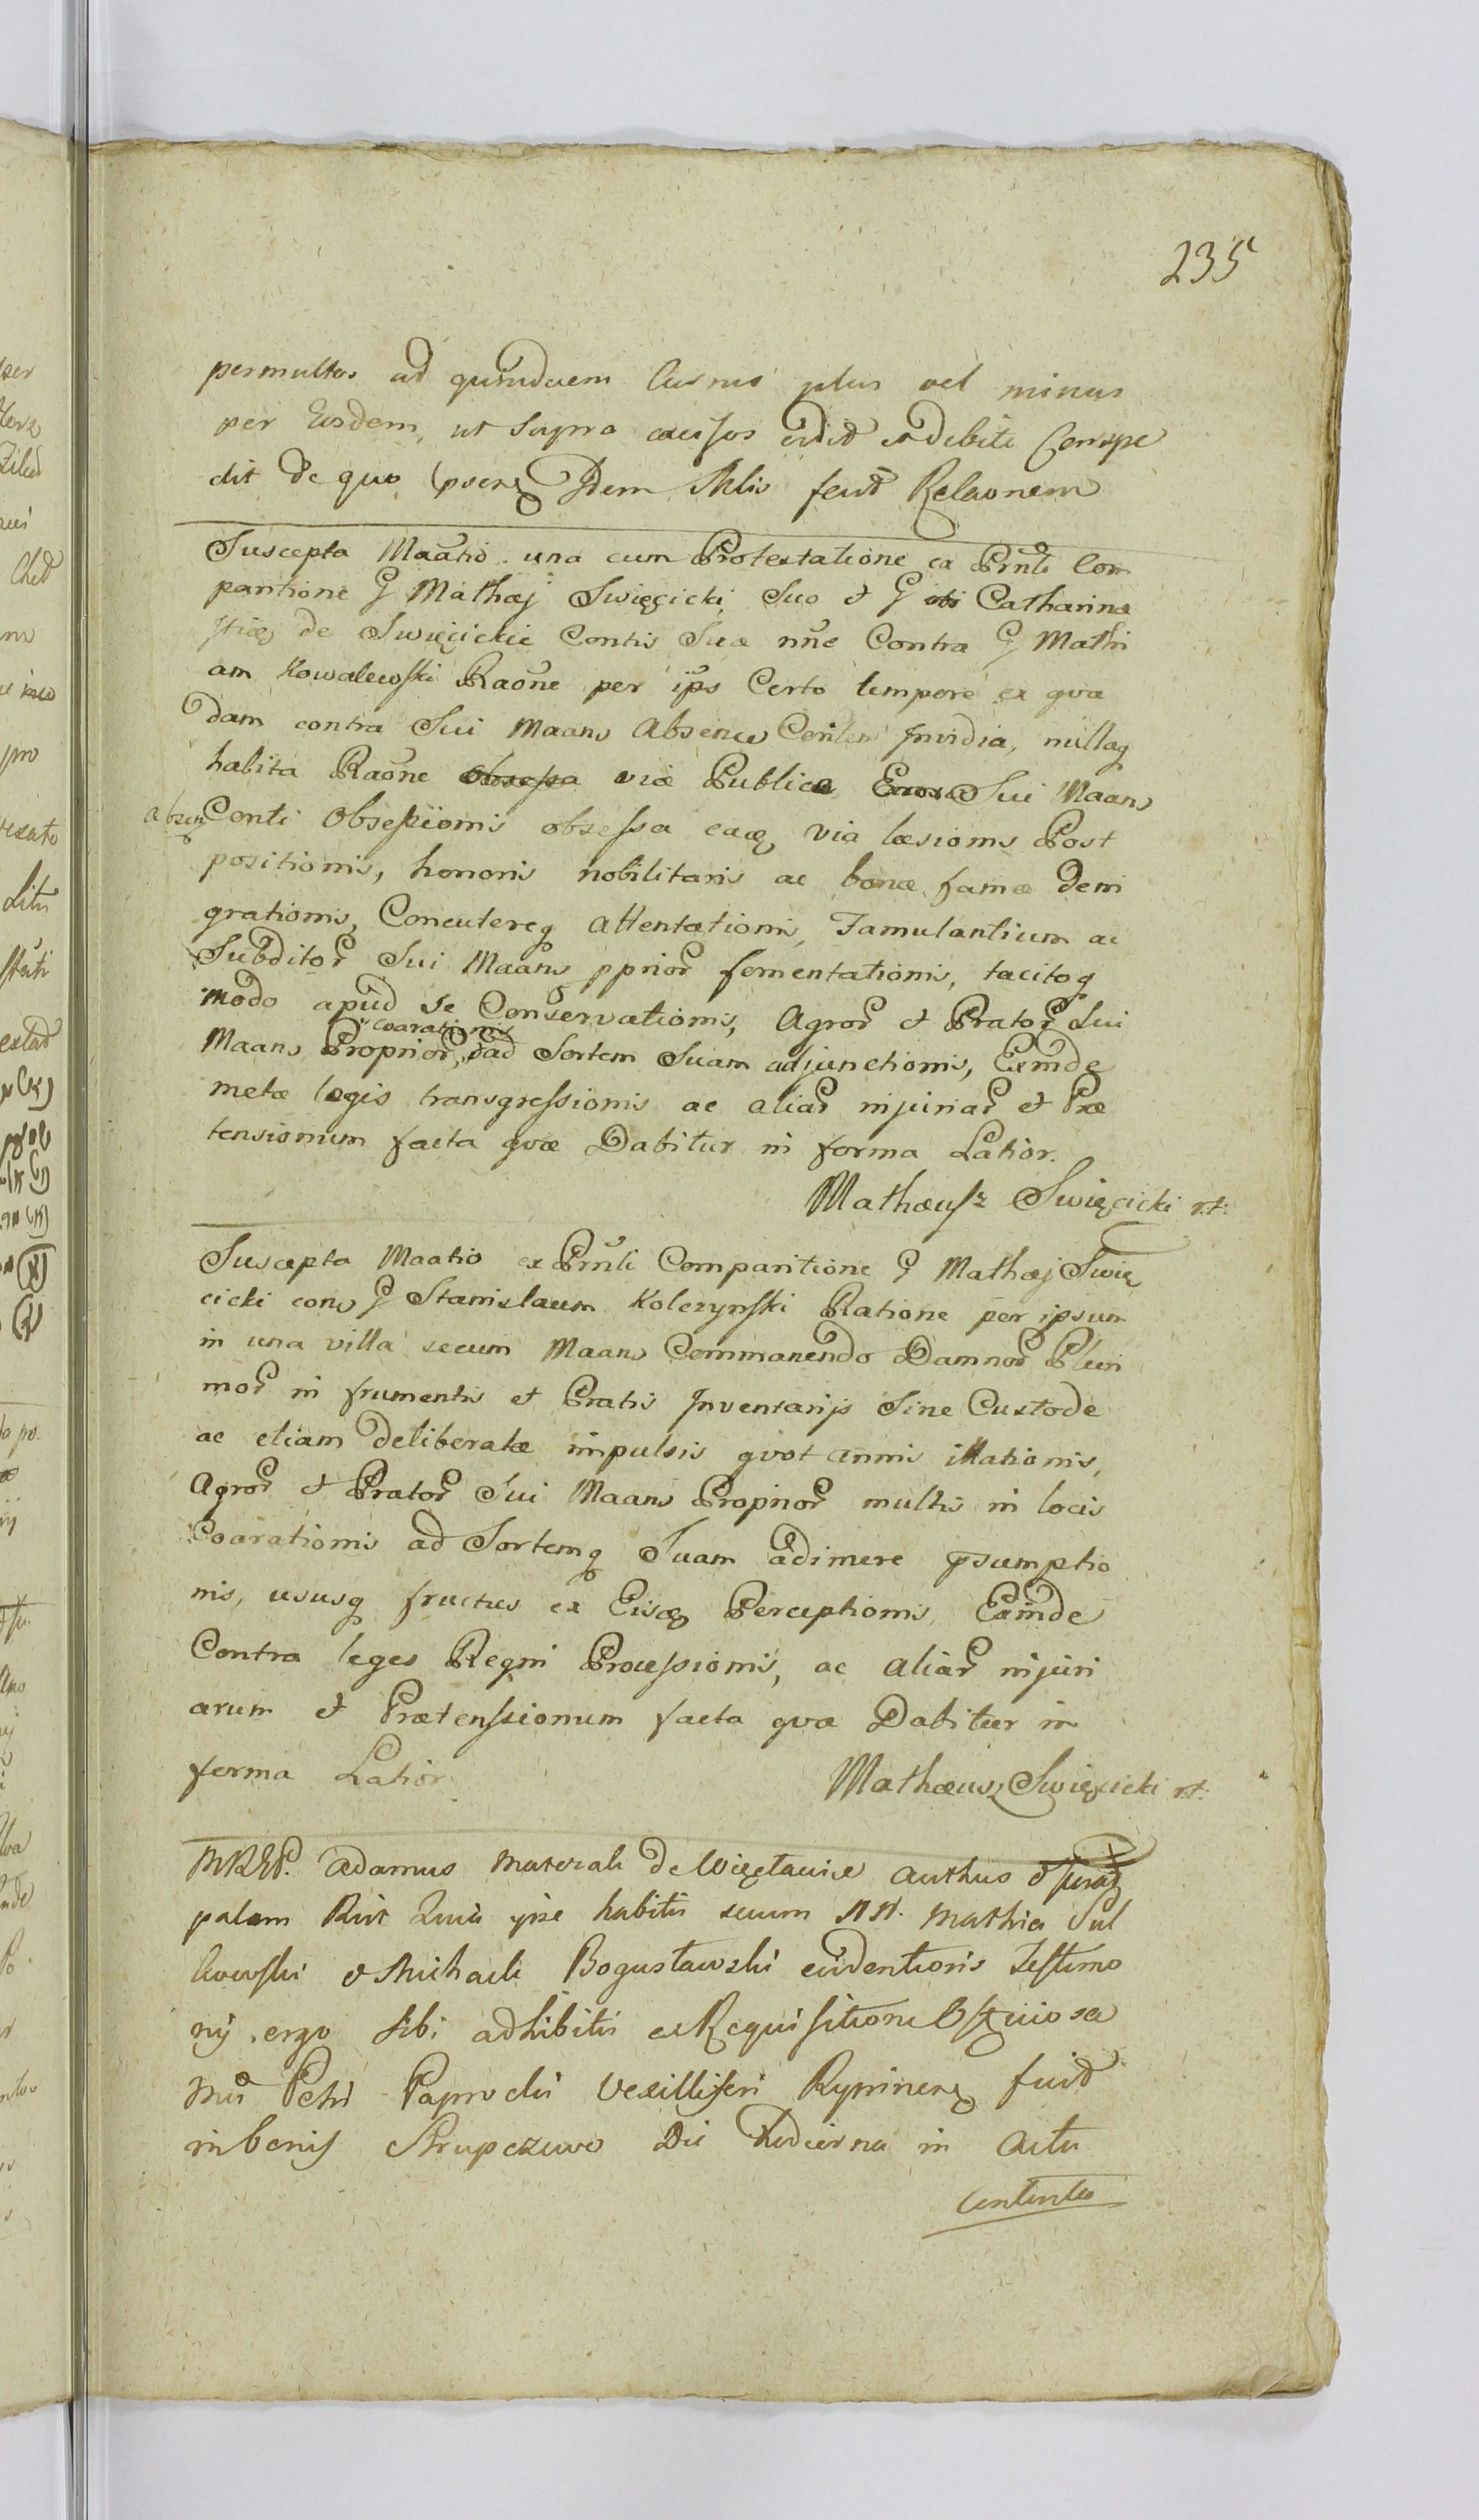 235
permultos ad quindecem plus vel minus
per Eosdem, ut Supra vidit et debite Conspe
dit de quo Idem Mlis fecit Relaonem
Suscepta Maatio una cum Protestatione ex Prnti Com
paritione G Mathæj Swięcicki Suo et G Catharinæ
de Swięcickie Contis Suæ nne Contra G Mathi
am Kowalewski Raone per ips Certo tempore ex qva
dam contra Sui Maans Absenq Conten Jnvidia, nullaq
habita Raone obsessa viæ Publicæ Sui Maans
absenq Conti Obsessionis obsessa eaq via læsionis Post
positionis, honoris nobilitaris ac bonæ famæ deni
grationis, Concutereq attentationis, Famulantium ac
Subditor Sui Maans pprior fomentationis, tacitoq
modo apud se Conservationis, Agror et Prator Sui
coarationis
Maans Proprior, ad Sortem Suam adjunctionis, Exinde
metæ legis transgressionis ac aliar injuriar et Præ
tensionum facta qvæ Dabitur in forma Latior.
Mathæusz Swięcicki rt:
Suscepta Maatio ex Prnti Comparitione G Mathæj Swię
cicki con G Stanislaum Kolczynski Ratione per ipsum
in una villa secum Maans Commanendo Damnor Pluri
mor in frumentis et Pratis Jnventarijs Sine Custode
ac etiam deliberatæ impulsis qvot annis illationis,
Agror et Prator Sui Maans Proprior multis in locis
Coarationis ad Sortemq Suam adimere psumptio
nis, ususq fructus ex Eisq Perceptionis, Exinde
Contra leges Regni Processionis, ac aliar injuri
arum et Prætenssionum facta qvæ Dabitur in
forma Latior
Mathæusz Swięcicki rt:
Adamus de authus et juratq
palam Quia ipse habitis secum NN. Mathia Sul
kowski et Michaele Bogusławski evidentioris Testimo
nij ergo sibi adhibitis ex Requisitione
Petri Paprocki Vexilliferi Rypinens fuit
in bonis Strupczewo Die hodierna in Actu
contento